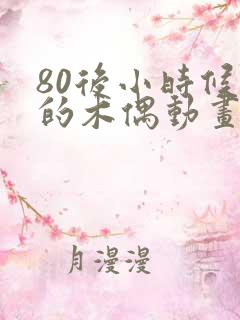 80後小時候
的木偶動畫
月漫漫